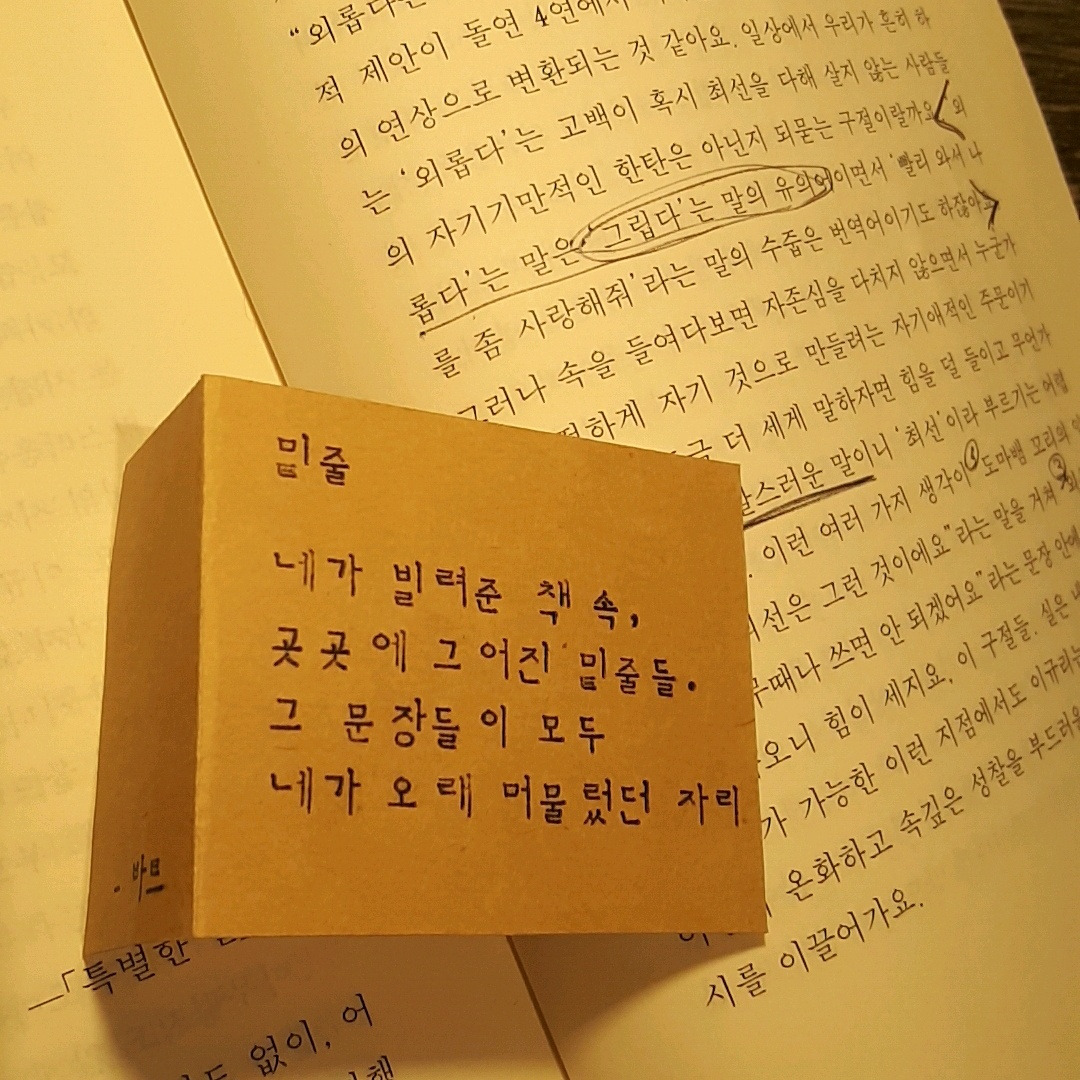 “외롭다는
적 제안이 돌연 4연에서
의 연상으로 변환되는 것 같아요. 일상에서 우리가 흔히 하
는 ‘외롭다’는 고백이 혹시 최선을 다해 살지 않는 사람들
의 자기기만적인 한탄은 아닌지 되묻는 구절이랄까요 ‘외
롭다’는 말은 ‘그립다’는 말의 유의어이면서 ‘빨리 와서 나
를 좀 사랑해줘’라는 말의 수줍은 번역어이기도 하잖아요
그러나 속을 들여다보면 자존심을 다치지 않으면서 누군가
하게 자기 것으로 만들려는 자기애적인 주문이기
더 세게 말하자면 힘을 덜 들이고 무언가
스러운 말이니 ‘최선’이라 부르기는 어렵
이런 여러 가지 생각이 ① 도마뱀 꼬리의
선은 그런 것이에요”라는 말을 거쳐 ②
때나 쓰면 안 되겠어요”라는 문장 안에
오니 힘이 세지요, 이 구절들. 실은
가 가능한 이런 지점에서도 이규리는
온화하고 속깊은 성찰을 부드러운
시를 이끌어가요.
밑줄
네가 빌려준 책 속,
곳곳에 그어진 밑줄들.
그 문장들이 모두
네가 오래 머물렀던 자리
—「특별한
없이, 어